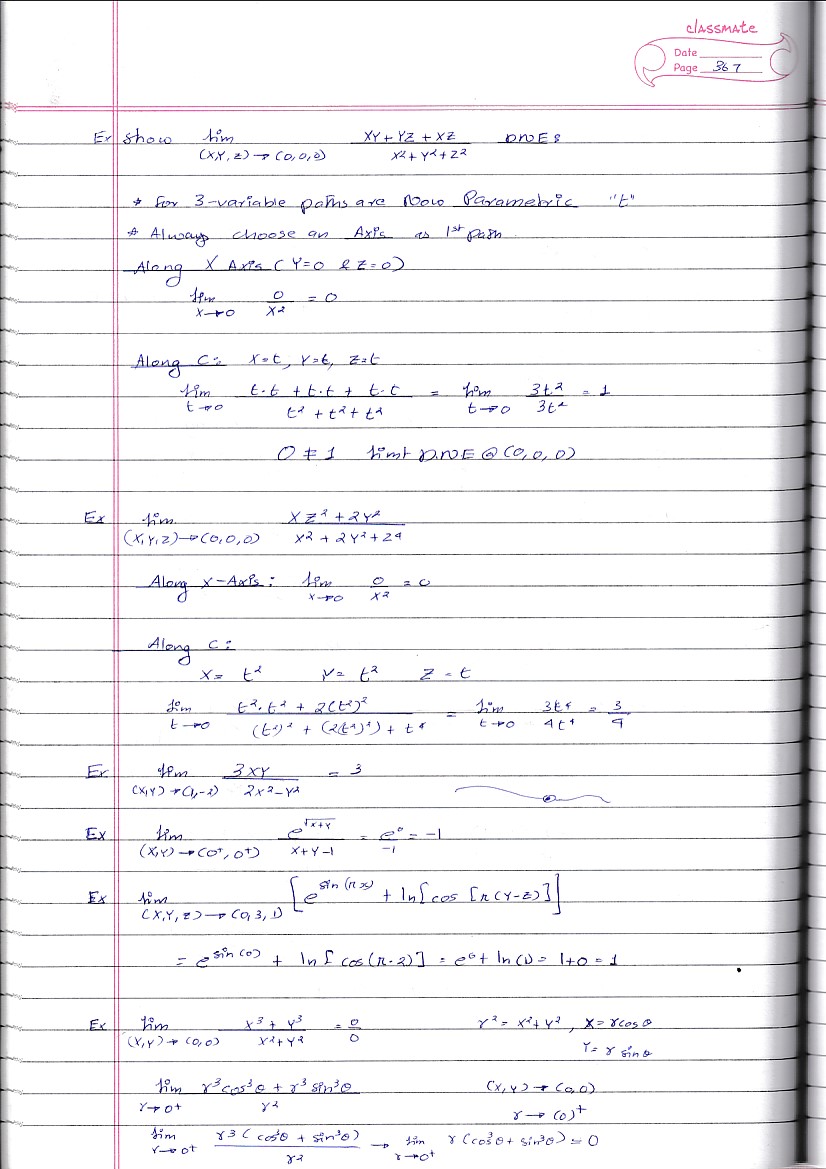 classmate
Date
Page 367
Ex Show lim (X,Y,Z)→(0,0,0) XY+YZ+XZ / X²+Y²+Z² DNE?
* For 3-variable paths are Now Parametric "t"
* Always choose an Axis as 1st path
Along X Axis (Y=0 & Z=0)
lim X→0 0/X² = 0
Along C: X=t, Y=t, Z=t
lim t→0 t·t + t·t + t·t / t² + t² + t² = lim t→0 3t²/3t² = 1
0 ≠ 1 limt D.N.E @ (0,0,0)
Ex lim (X,Y,Z)→(0,0,0) XZ² + 2Y² / X² + 2Y² + Z⁴
Along X-Axis: lim X→0 0/X² = 0
Along C:
X = t² Y = t² Z = t
lim t→0 t²·t² + 2(t²)² / (t²)² + (2(t²)²) + t⁴ = lim t→0 3t⁴/4t⁴ = 3/4
Ex lim (X,Y)→(1,-2) 3XY / 2X²-Y² = 3
Ex lim (X,Y)→(0⁺,0⁺) e^√(X+Y) / X+Y-1 = e⁰/-1 = -1
Ex lim (X,Y,Z)→(0,3,1) [e^sin(πx) + ln[cos[π(Y-Z)]]
= e^sin(0) + ln[cos(π·2)] = e⁰ + ln(1) = 1+0 = 1
Ex lim (X,Y)→(0,0) X³ + Y³ / X²+Y² = 0/0 r² = X²+Y², X = rcosθ
Y = r sinθ
lim r→0⁺ r³cos³θ + r³sin³θ / r² (X,Y)→(0,0)
r→(0)⁺
lim r→0⁺ r³(cos³θ + sin³θ) / r² → lim r→0⁺ r(cos³θ + sin³θ) = 0